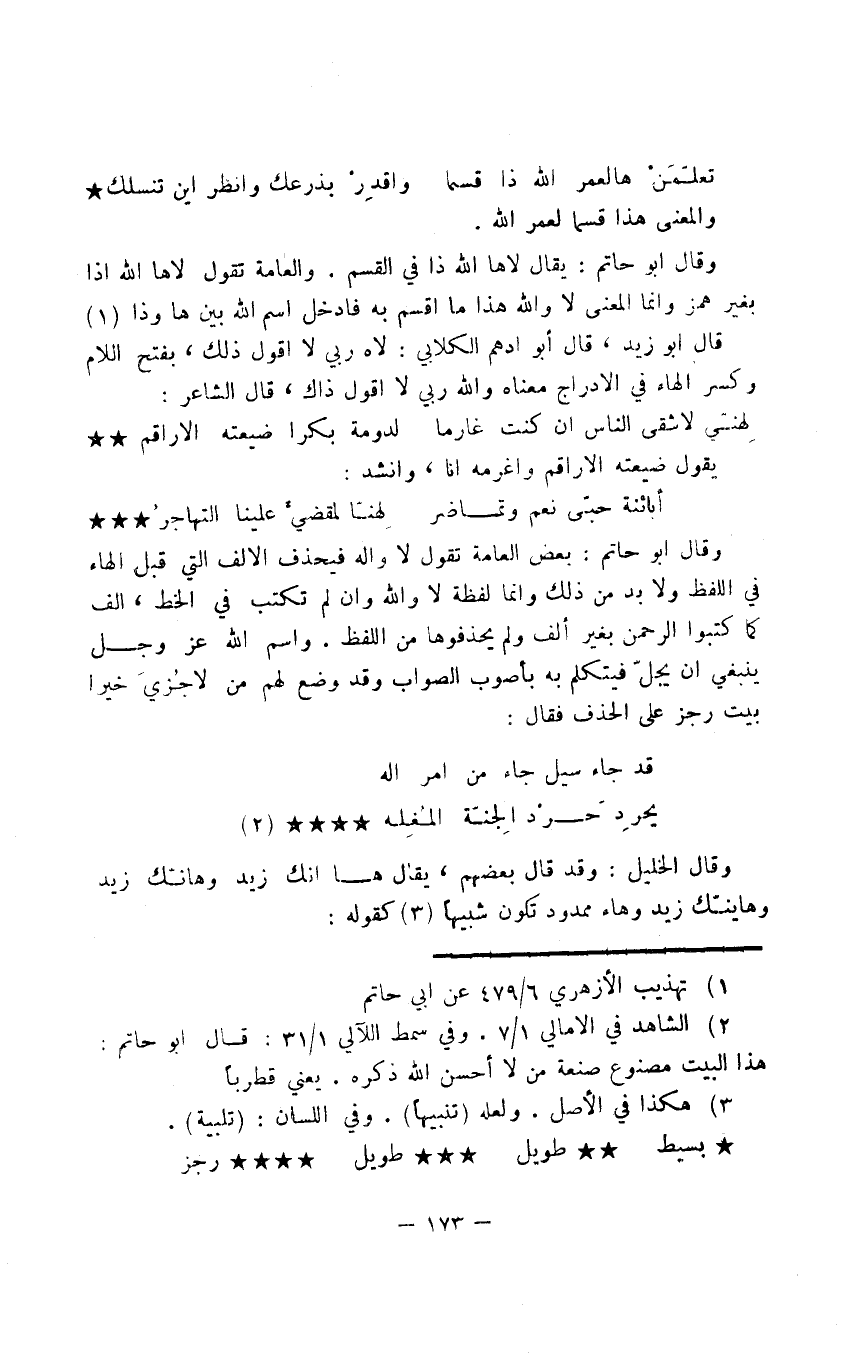 تعلـّمَنْ هالعمر الله ذا قسما واقدِرْ بذرعك وانظر اين تنسلك★
والمعنى هذا قسما لعمر الله .
وقال ابو حاتم : يقال لاها الله ذا في القسم . والعامة تقول لاها الله اذا
بغير همز وانما المعنى لا والله هذا ما اقسم به فادخل اسم الله بين ها وذا (١)
قال ابو زيد ، قال أبو ادهم الكلابي : لاه ربي لا اقول ذلك ، بفتح اللام
وكسر الهاء في الادراج معناه والله ربي لا اقول ذاك ، قال الشاعر :
لِهنـّي لاشقى الناس ان كنت غارما لدومة بكرا ضيعته الاراقم ★★
يقول ضيعته الاراقم واغرمه انا ، وانشد :
أبائنة حبّى نعم وتمـــاضر لِهنـّا لمقضيٌ علينا التهاجرُ★★★
وقال ابو حاتم : بعض العامة تقول لا واله فيحذف الالف التي قبل الهاء
في اللفظ ولا بد من ذلك وانما لفظة لا والله وان لم تكتب في الخط ، الف
كما كتبوا الرحمن بغير ألف ولم يحذفوها من اللفظ . واسم الله عز وجـــل
ينبغي ان يجلّ فيتكلم به بأصوب الصواب وقد وضع لهم من لاجُزيَ خيرا
بيت رجز على الحذف فقال :
قد جاء سيل جاء من امر اله
يحرِد حَـــرْد الجِنـّة المُغِله ★★★★ (٢)
وقال الخليل : وقد قال بعضهم ، يقال هـــا انك زيد وهانـّك زيد
وهاينـّك زيد وهاء ممدود تكون شبيهاً (٣) كقوله :
١) تهذيب الأزهري ٤٧٩/٦ عن ابي حاتم
٢) الشاهد في الامالي ٧/١ . وفي سمط اللآلي ٣١/١ : قـــال ابو حاتم :
هذا البيت مصنوع صنعة من لا أحسن الله ذكره . يعني قطرباً
٣) هكذا في الأصل . ولعله (تنبيهاً) . وفي اللسان : (تلبية) .
★ بسيط ★★ طويل ★★★ طويل ★★★★ رجز
— ١٧٣ —